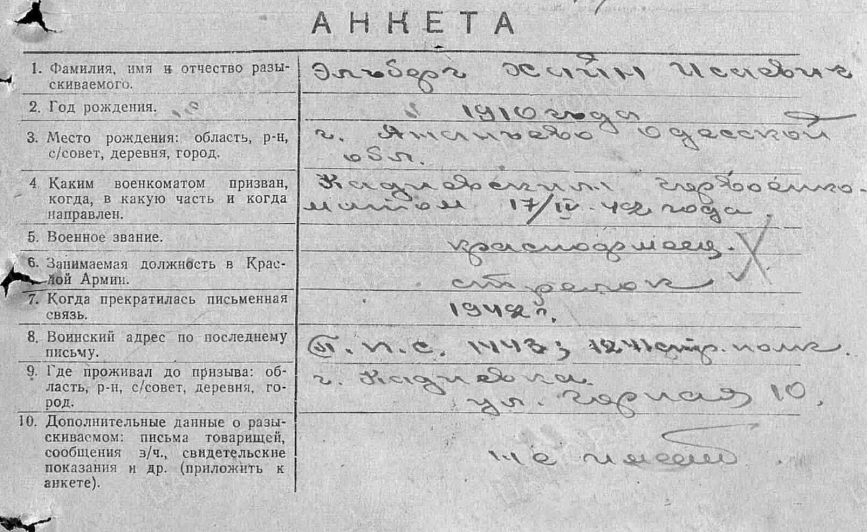 АНКЕТА
1. Фамилия, имя и отчество разы-
скиваемого.
Эльберг Хайн Исаевич
2. Год рождения.
1910 года
3. Место рождения: область, р-н,
с/совет, деревня, город.
г. Ананьево Одесской
обл.
4 Каким военкоматом призван,
когда, в какую часть и когда
направлен.
Кадиевским горвоенко-
матом 17/IV-42 года.
5. Военное звание.
красноармеец.
6. Занимаемая должность в Крас-
ной Армии.
стрелок
7. Когда прекратилась письменная
связь.
1942 г.
8. Воинский адрес по последнему
письму.
П.П.С. 1443; 1241 стр. полк.
9. Где проживал до призыва: об-
ласть, р-н, с/совет, деревня, го-
род.
г. Кадиевка
ул. Горная 10.
10. Дополнительные данные о разы-
скиваемом: письма товарищей,
сообщения в/ч., свидетельские
показания и др. (приложить к
анкете).
не имеет